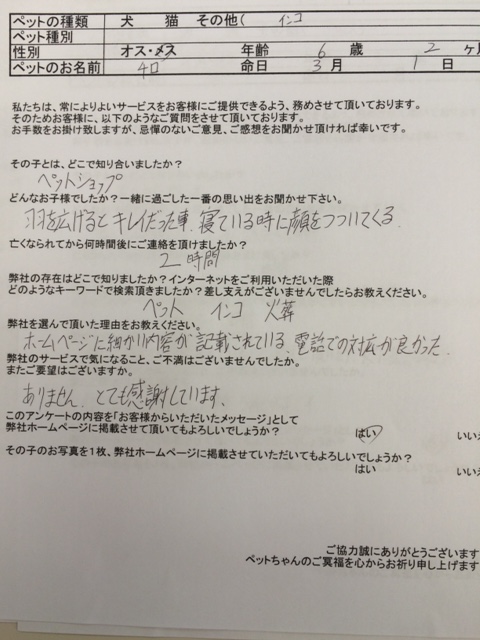 ペットの種類 犬 猫 その他( インコ
ペット種別
性別 オス・メス 年齢 6 歳 2 ヶ月
ペットのお名前 命日 3 月 1 日
私たちは、常によりよいサービスをお客様にご提供できるよう、務めさせて頂いております。
そのためお客様に、以下のようなご質問をさせて頂いております。
お手数をお掛け致しますが、忌憚のないご意見、ご感想をお聞かせ頂ければ幸いです。
その子とは、どこで知り合いましたか?
ペットショップ
どんなお子様でしたか?一緒に過ごした一番の思い出をお聞かせ下さい。
羽を広げるとキレイだった事、寝ている時に顔をつついてくる。
亡くなられてから何時間後にご連絡を頂けましたか?
2時間
弊社の存在はどこで知りましたか?インターネットをご利用いただいた際
どのようなキーワードで検索頂きましたか?差し支えがございませんでしたらお教えください。
ペット インコ 火葬
弊社を選んで頂いた理由をお教えください。
ホームページに細かい内容が記載されている、電話での対応が良かった。
弊社のサービスで気になること、ご不満はございませんでしたか。
またご要望はございますか。
ありません。とても感謝しています。
このアンケートの内容を「お客様からいただいたメッセージ」として
弊社ホームページに掲載させて頂いてもよろしいでしょうか? はい いいえ
その子のお写真を1枚、弊社ホームページに掲載させていただいてもよろしいでしょうか?
はい いいえ
ご協力誠にありがとうございます
ペットちゃんのご冥福を心からお祈り申し上げます